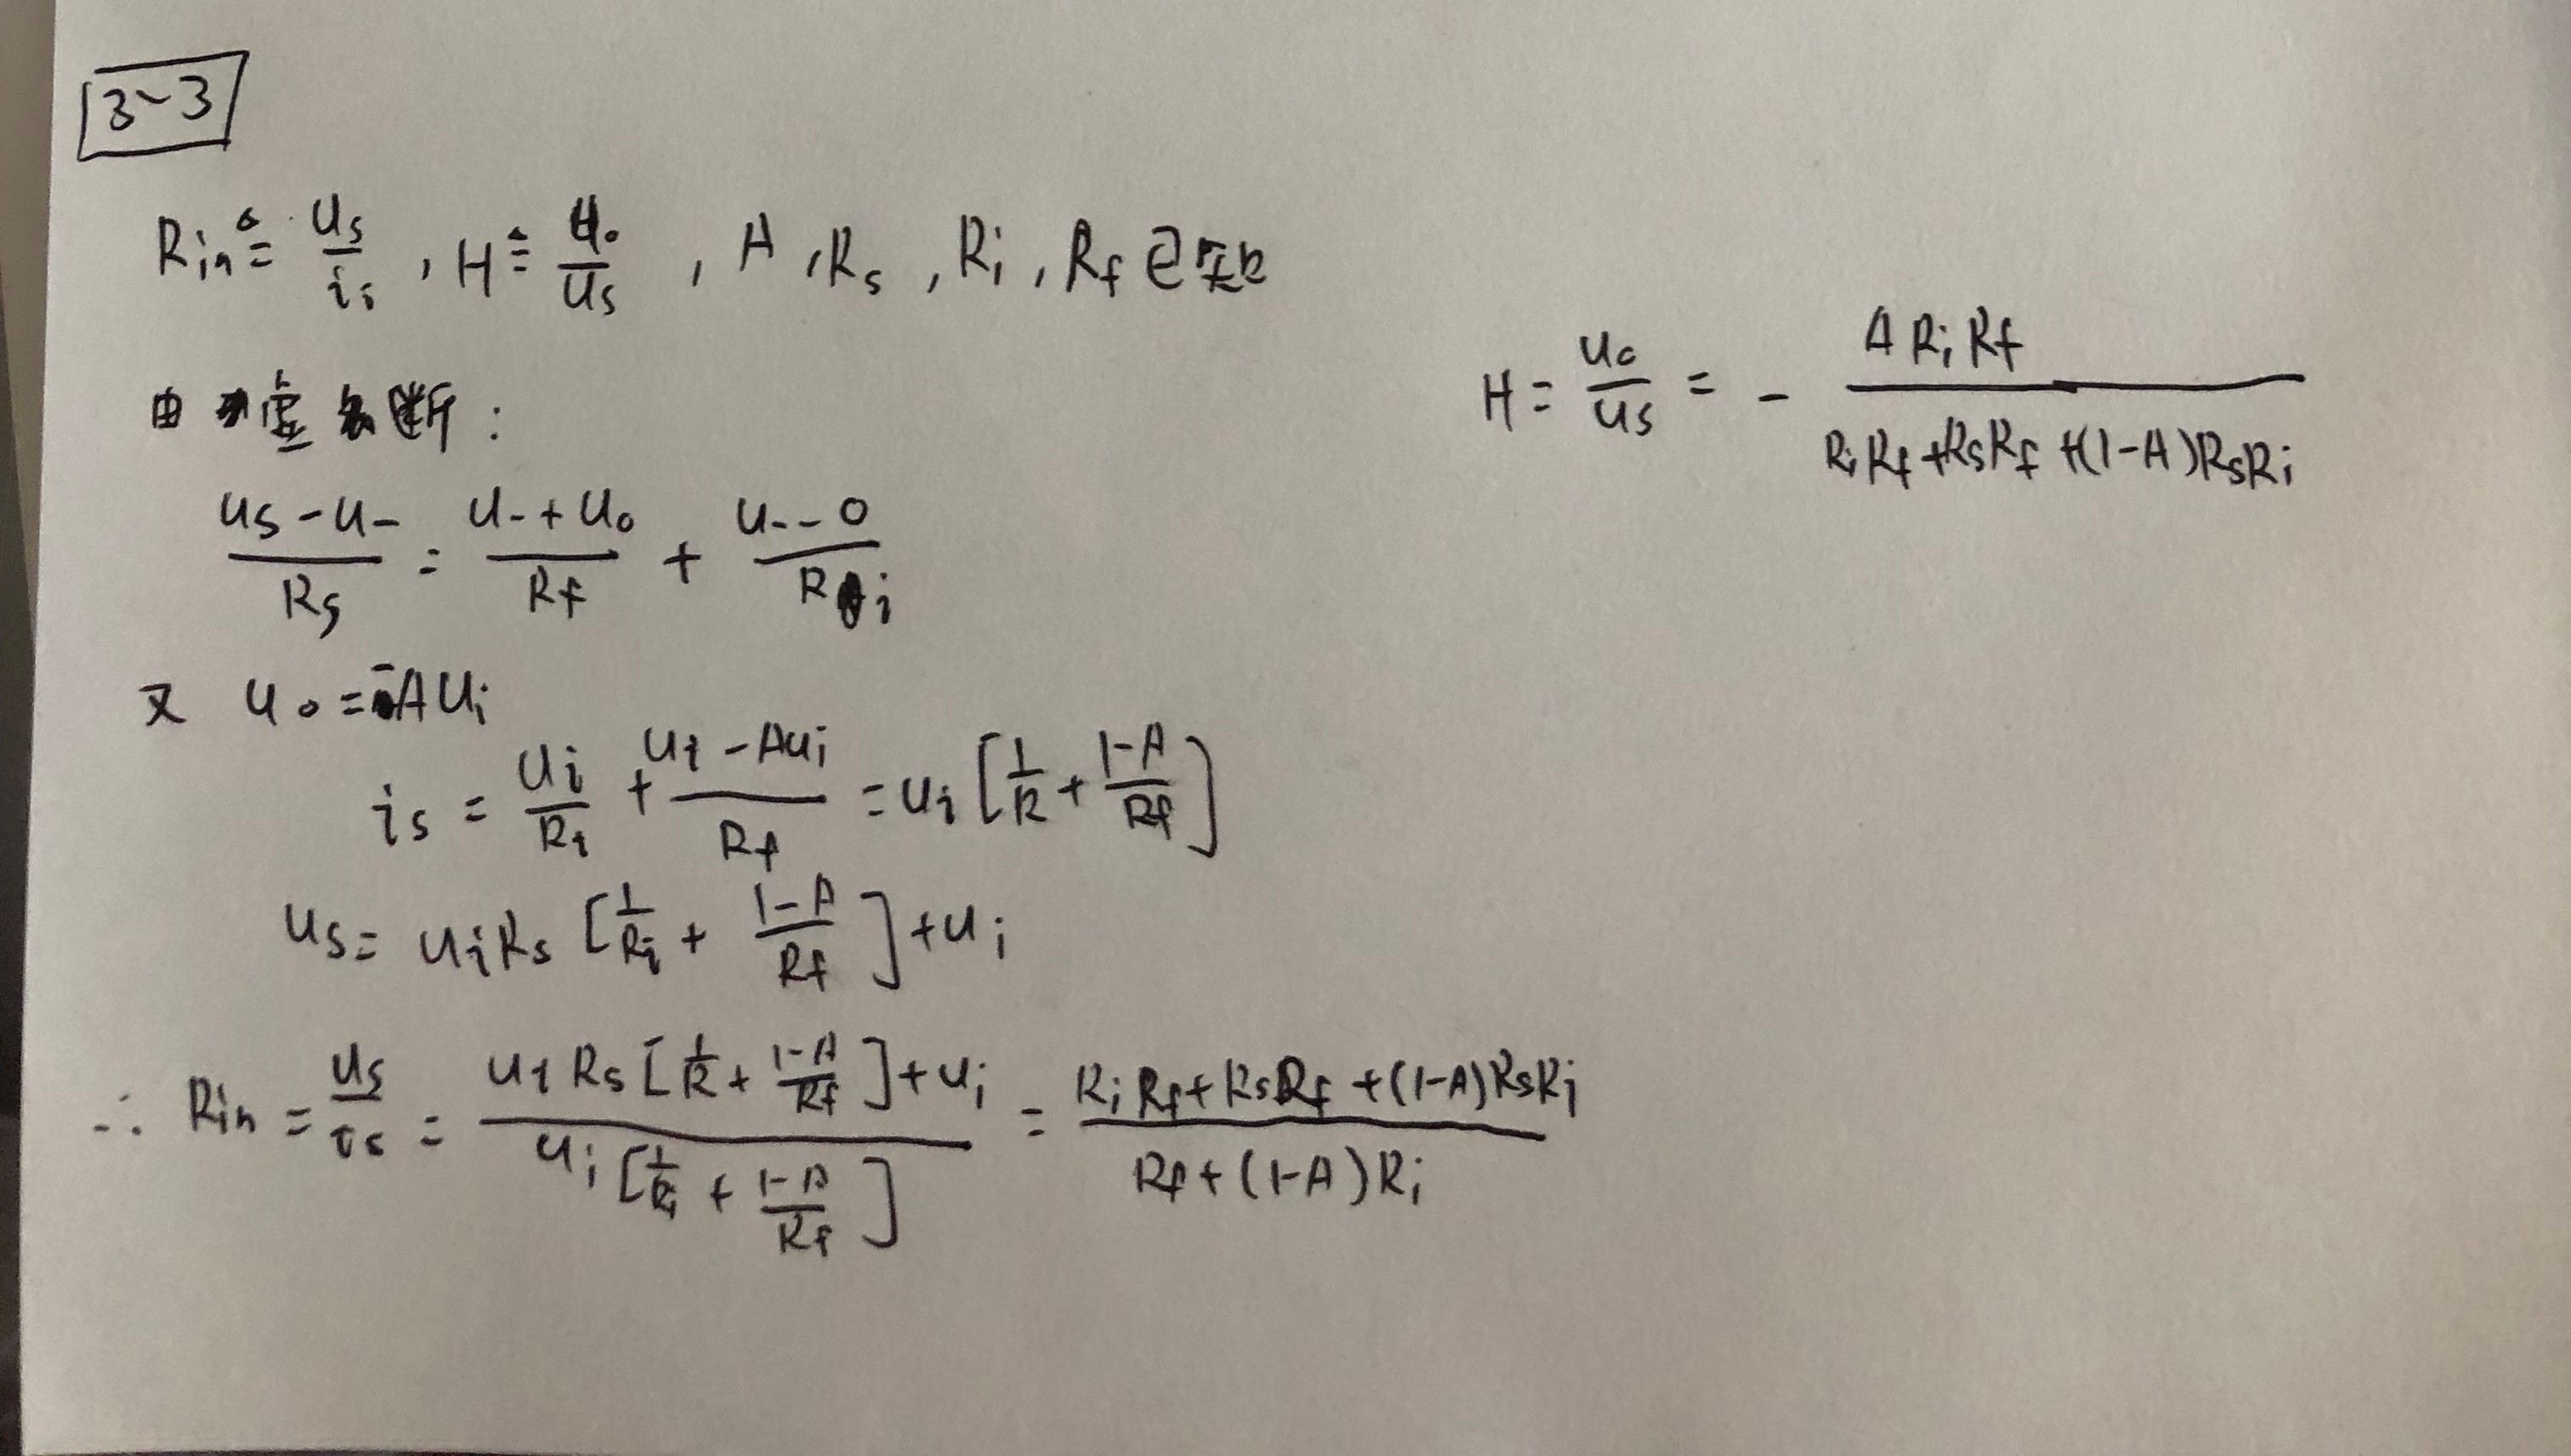 3-3
Rin ≜ us/is , H ≜ uo/us , A , Rs , Ri , Rf 已知
由 虚 断 :
(us - u-)/Rs = (u- + uo)/Rf + (u- - 0)/Ri
又 uo = -Aui
is = ui/Ri + (ui - Aui)/Rf = ui [1/R + (1-A)/Rf]
us = uiRs [1/Ri + (1-A)/Rf] + ui
∴ Rin = us/is = (uiRs [1/R + (1-A)/Rf] + ui)/(ui [1/Ri + (1-A)/Rf]) = (RiRf + RsRf + (1-A)RsRi)/(Rf + (1-A)Ri)
H = uo/us = - (ARiRf)/(RiRf + RsRf + (1-A)RsRi)